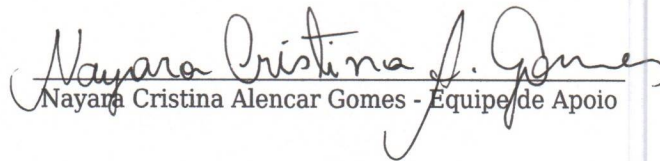 Nayara Cristina A. Gomes
Nayara Cristina Alencar Gomes - Equipe de Apoio